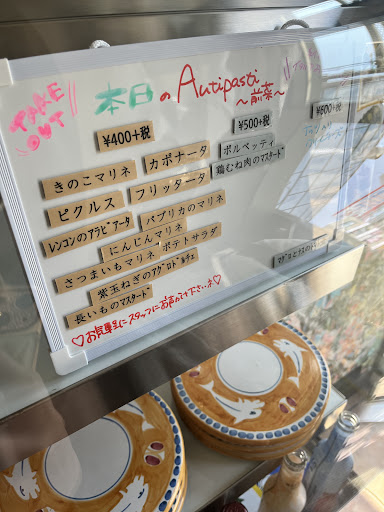 TAKE OUT
本日のAntipasti
～前菜～
¥400+税
きのこマリネ
カポナータ
ピクルス
フリッタータ
レンコンのアラビアータ
パプリカのマリネ
にんじんマリネ
さつまいもマリネ
ポテトサラダ
紫玉ねぎのアグロドルチェ
長いものマスタード
¥500+税
ポルペッティ
鶏むね肉のマスタード
¥600+税
♡お気軽にスタッフにお声がけ下さいネ♡